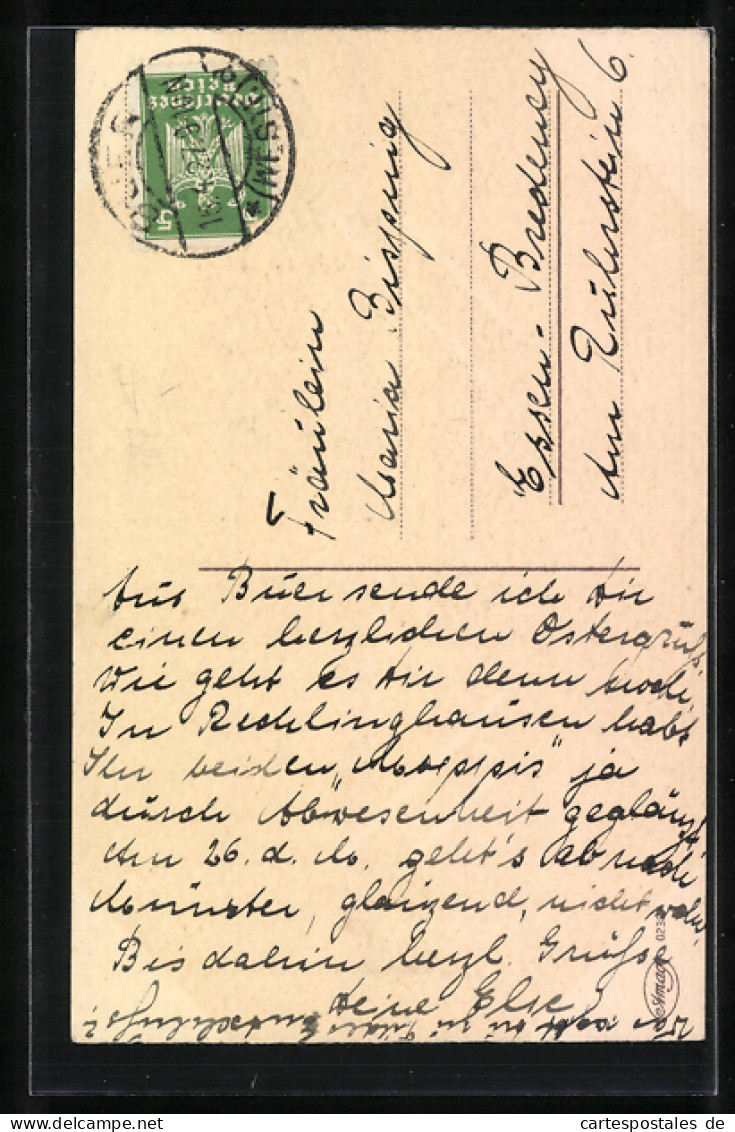 Fräulein
Maria Bisping
Essen-Bredeney
Am Ruhrstein 6.
Aus Buer sende ich Dir
einen herzlichen Ostergruß,
Wie geht es Dir denn noch,
In Recklinghausen habt
Ihr beiden „Moppis“ ja
durch Abwesenheit geglänzt
Am 26. d. M. geht's ab nach
Münster, glänzend, nicht wahr,
Bis dahin herzl. Grüße
Deine Else
Deutsches Reich
5
(WESTF)
Amag
cartespostales de